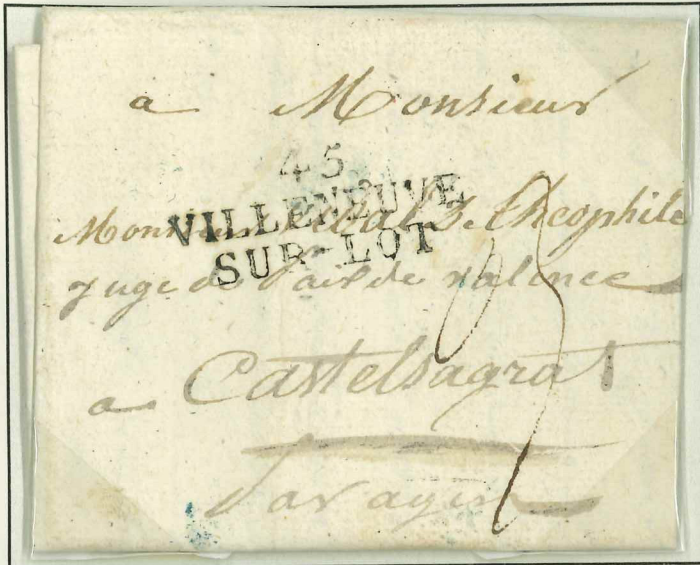 a Monsieur
45
VILLENEUVE
SUR-LOT
Monsieur théophile
juge de Paix de valence
a Castelsagrat
par agen